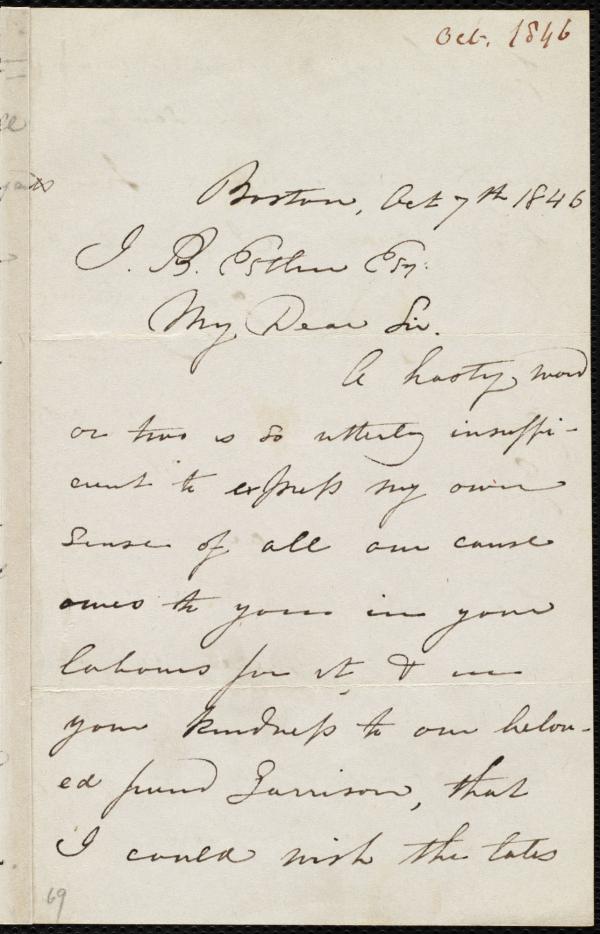 Oct. 1846
Boston, Oct 7th 1846
J. B. Estlin Esq.
My Dear Sir.
A hasty word
or two is so utterly insuffi-
cient to express my own
sense of all our cause
owes to yours in your
labours for it & in
your kindness to our belov-
ed friend Garrison, that
I could wish the lates
69